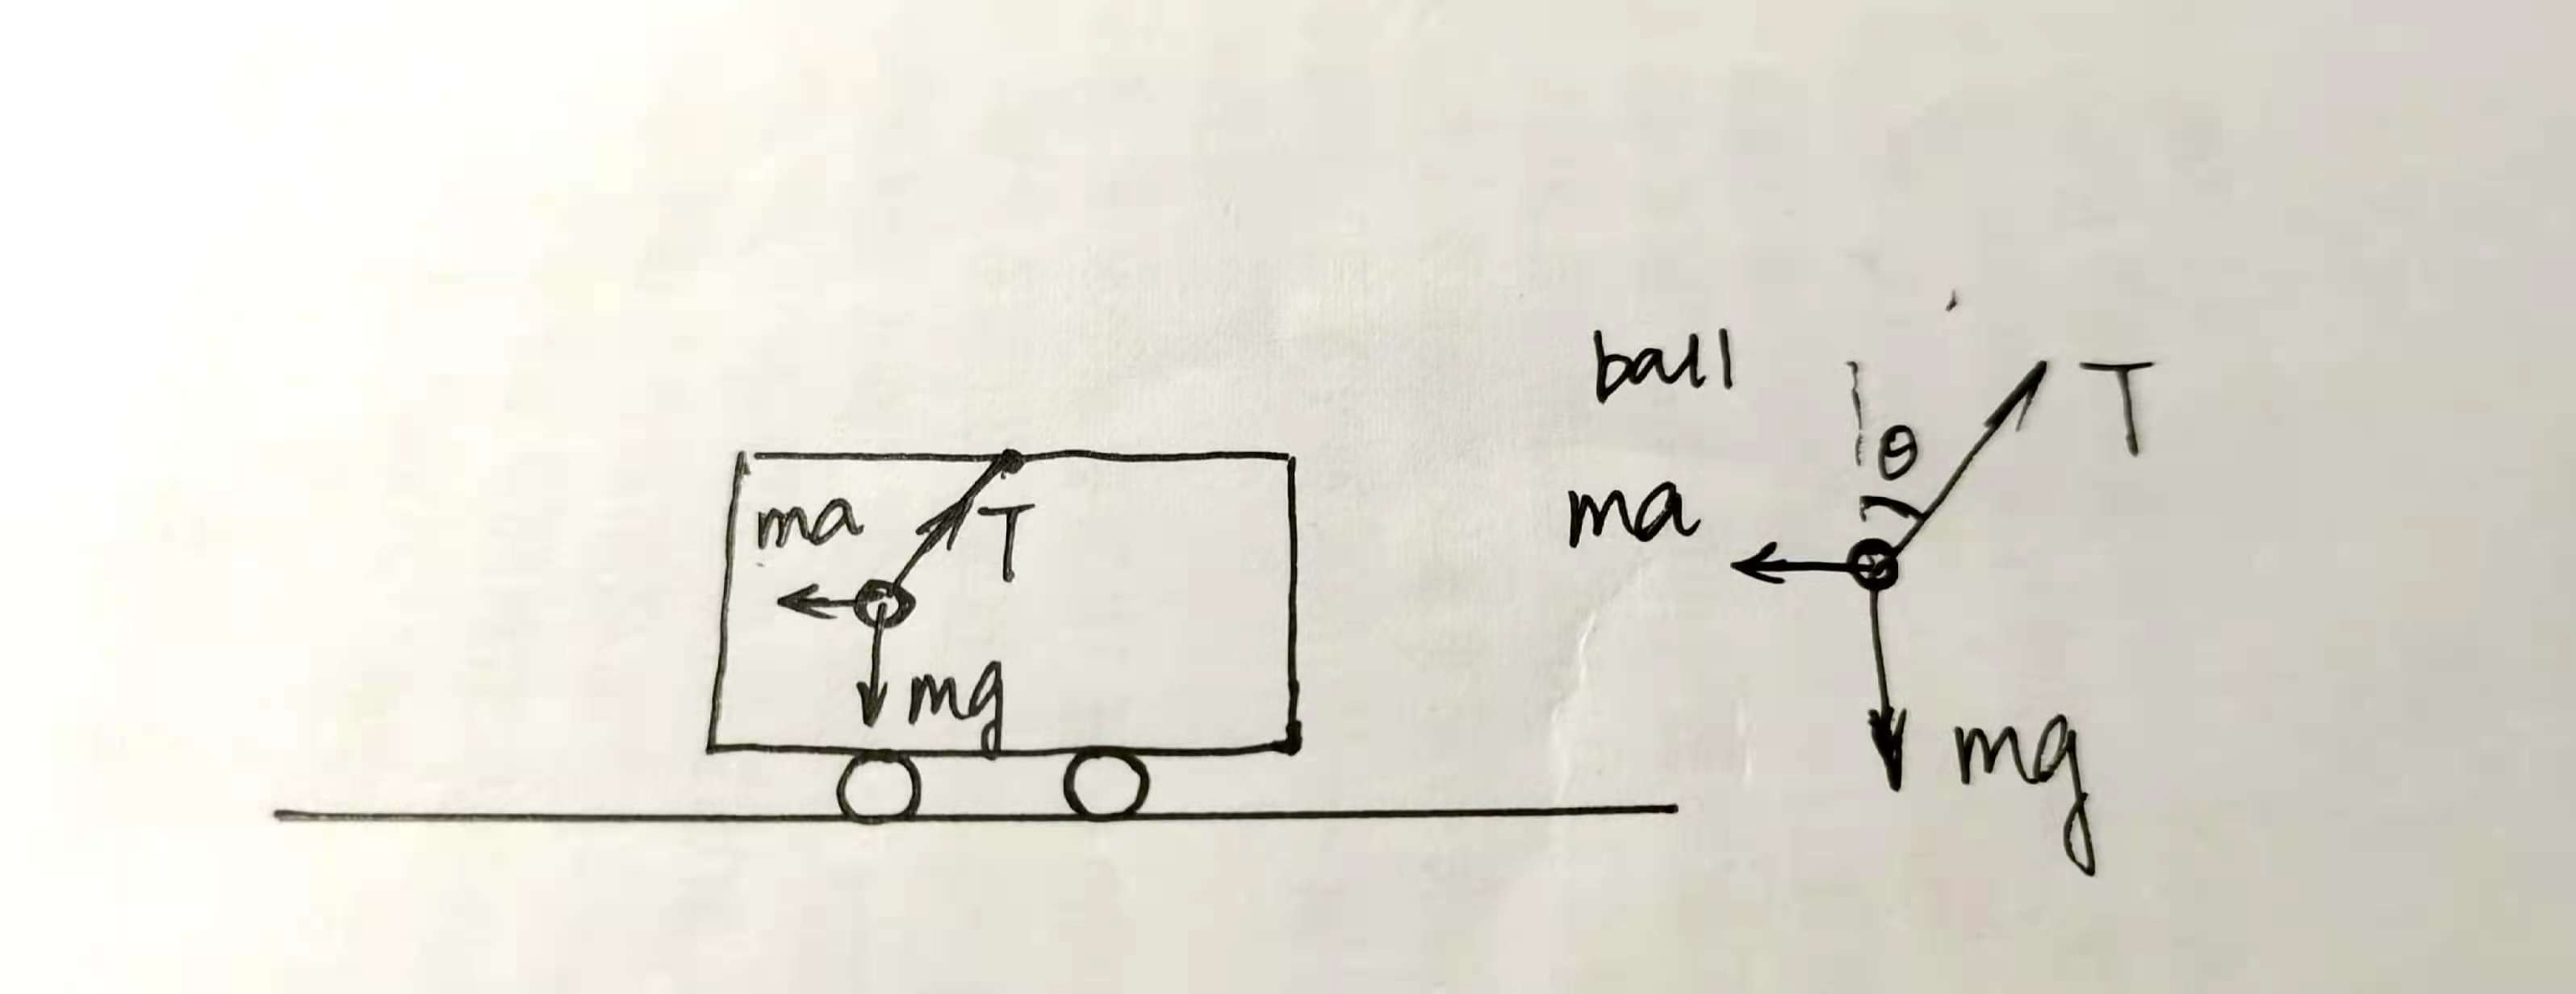 ma
T
mg
ball
θ
T
ma
mg